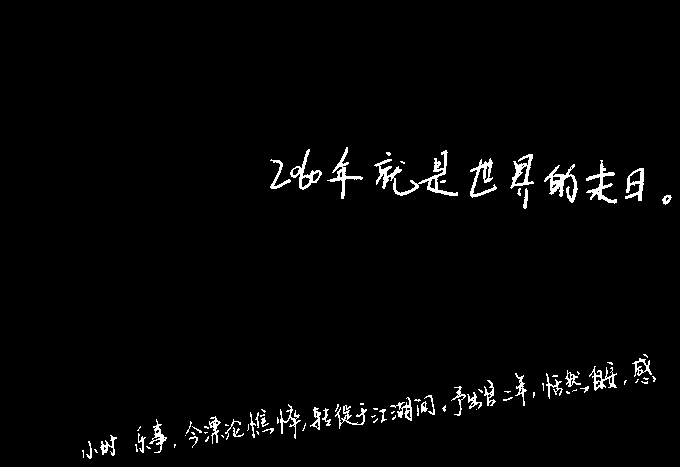 2060年就是世界的末日。
小时乐事，今漂沦憔悴，转徙于江湖间。予出官二年，恬然自安，感